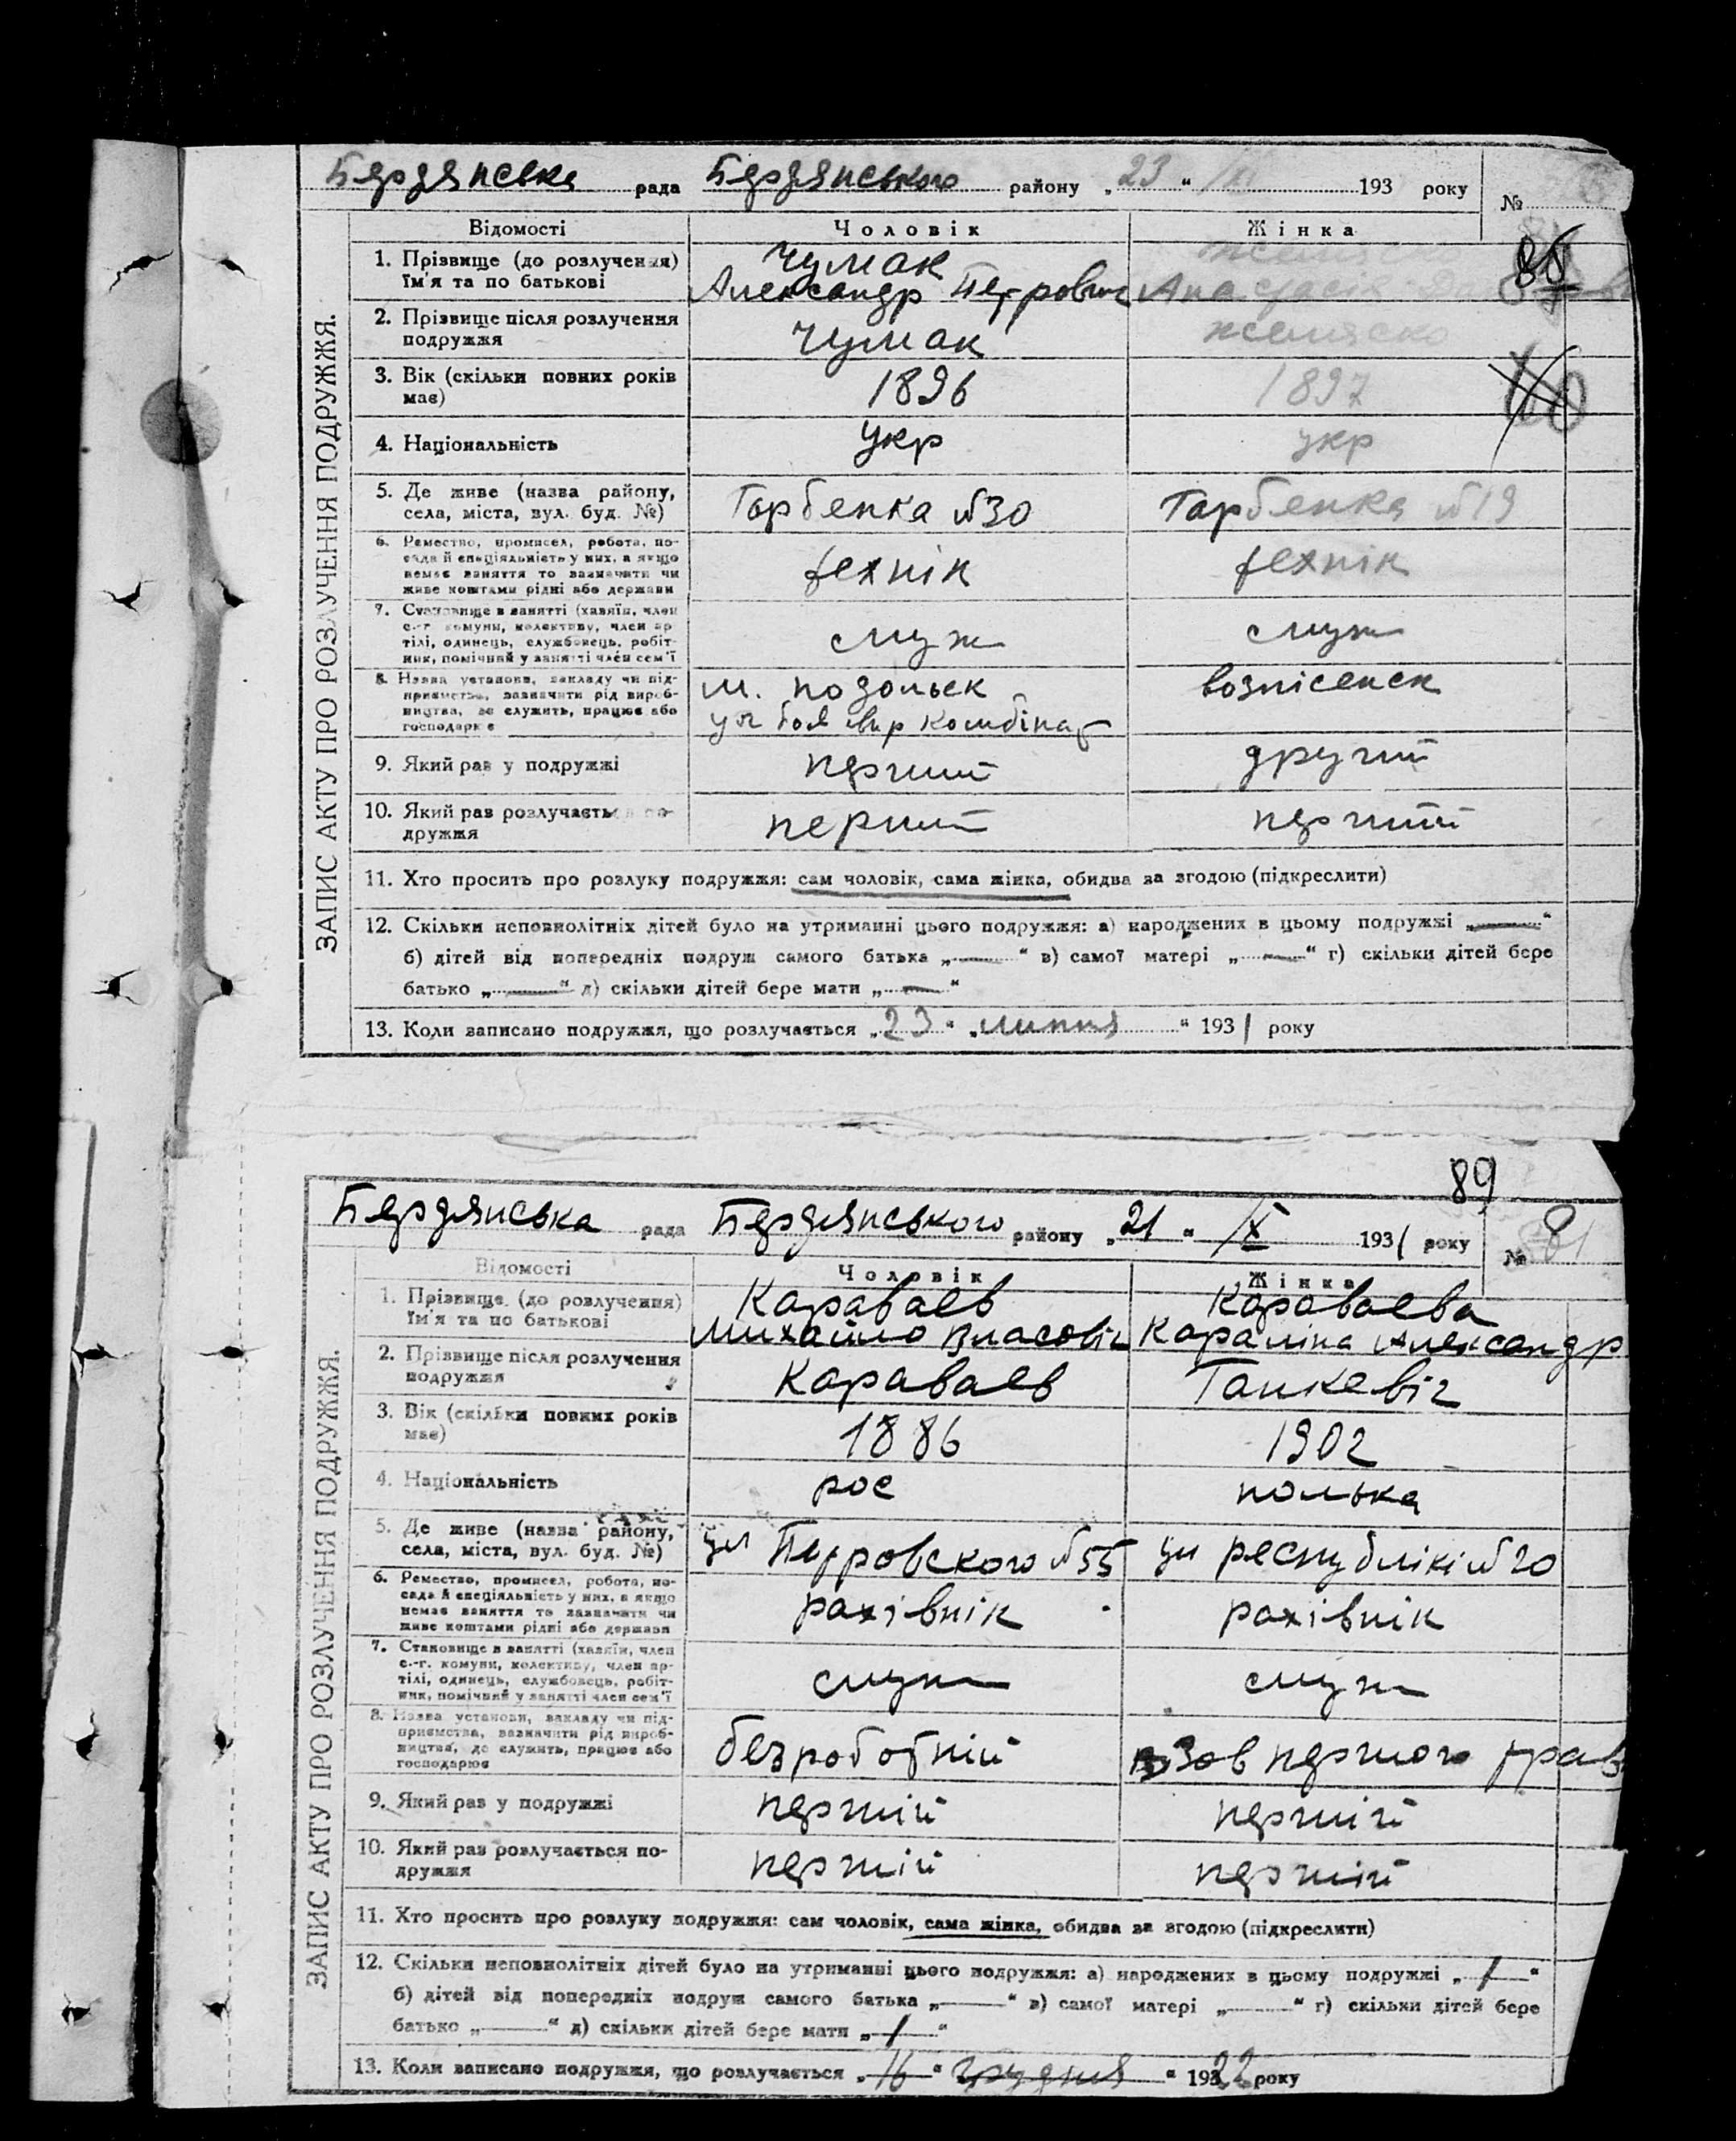 Бердянська рада Бердянського району „23“ 193 року
№
88
Відомості Чоловік Жінка
ЗАПИС АКТУ ПРО РОЗЛУЧЕННЯ ПОДРУЖЖЯ.
1. Прізвище (до розлучення) Чумак
Ім'я та по батькові Александр Петрович Анастасія
2. Прізвище після розлучення
подружжя Чумак
3. Вік (скільки повних років
має) 1896 1897
4. Національність укр укр
5. Де живе (назва району,
села, міста, вул. буд. №) Горбенка №30 Горбенка №19
6. Ремество, промисел, робота, по-
сада й спеціяльність у них, а якщо
немає заняття то зазначити чи
живе коштами рідні або держави
техnік техnік
7. Становище в занятті (хазяїн, член
с.-г. комуни, колективу, член ар-
тілі, одинець, службовець, робіт-
ник, помічний у занятті член сем'ї
служ служ
8. Назва установи, закладу чи під-
приємства, зазначити рід вироб-
ництва, де служить, працює або
господарює
м. подольск вознісенск
комбінат
9. Який раз у подружжі перший другий
10. Який раз розлучається по-
дружжя перший перший
11. Хто просить про розлуку подружжя: сам чоловік, сама жінка, обидва за згодою (підкреслити)
12. Скільки неповнолітніх дітей було на утриманні цього подружжя: а) народжених в цьому подружжі „—“
б) дітей від попередніх подруж самого батька „—“ в) самої матері „—“ г) скільки дітей бере
батько „—“ д) скільки дітей бере мати „—“
13. Коли записано подружжя, що розлучається „23“ „липня“ 1931 року
89
Бердянська рада Бердянського району „21“ IX 1931 року
№ 81
Відомості Чоловік Жінка
ЗАПИС АКТУ ПРО РОЗЛУЧЕННЯ ПОДРУЖЖЯ.
1. Прізвище (до розлучення) Караваев Караваева
Ім'я та по батькові Михайло Власовіч Кароліна Александр
2. Прізвище після розлучення
подружжя Караваев Танкевіч
3. Вік (скільки повних років
має) 1886 1902
4. Національність рос полька
5. Де живе (назва району,
села, міста, вул. буд. №) ул Петровского №55 ул республікі №20
6. Ремество, промисел, робота, по-
сада й спеціяльність у них, а якщо
немає заняття то зазначити чи
живе коштами рідні або держави
рахівнік рахівнік
7. Становище в занятті (хазяїн, член
с.-г. комуни, колективу, член ар-
тілі, одинець, службовець, робіт-
ник, помічний у занятті член сем'ї
служ служ
8. Назва установи, закладу чи під-
приємства, зазначити рід вироб-
ництва, де служить, працює або
господарює
безроботній зав першого трав
9. Який раз у подружжі першій першій
10. Який раз розлучається по-
дружжя першій першій
11. Хто просить про розлуку подружжя: сам чоловік, сама жінка, обидва за згодою (підкреслити)
12. Скільки неповнолітніх дітей було на утриманні цього подружжя: а) народжених в цьому подружжі „1“
б) дітей від попередніх подруж самого батька „—“ в) самої матері „—“ г) скільки дітей бере
батько „—“ д) скільки дітей бере мати „1“
13. Коли записано подружжя, що розлучається „16“ грудня“ 1922 року